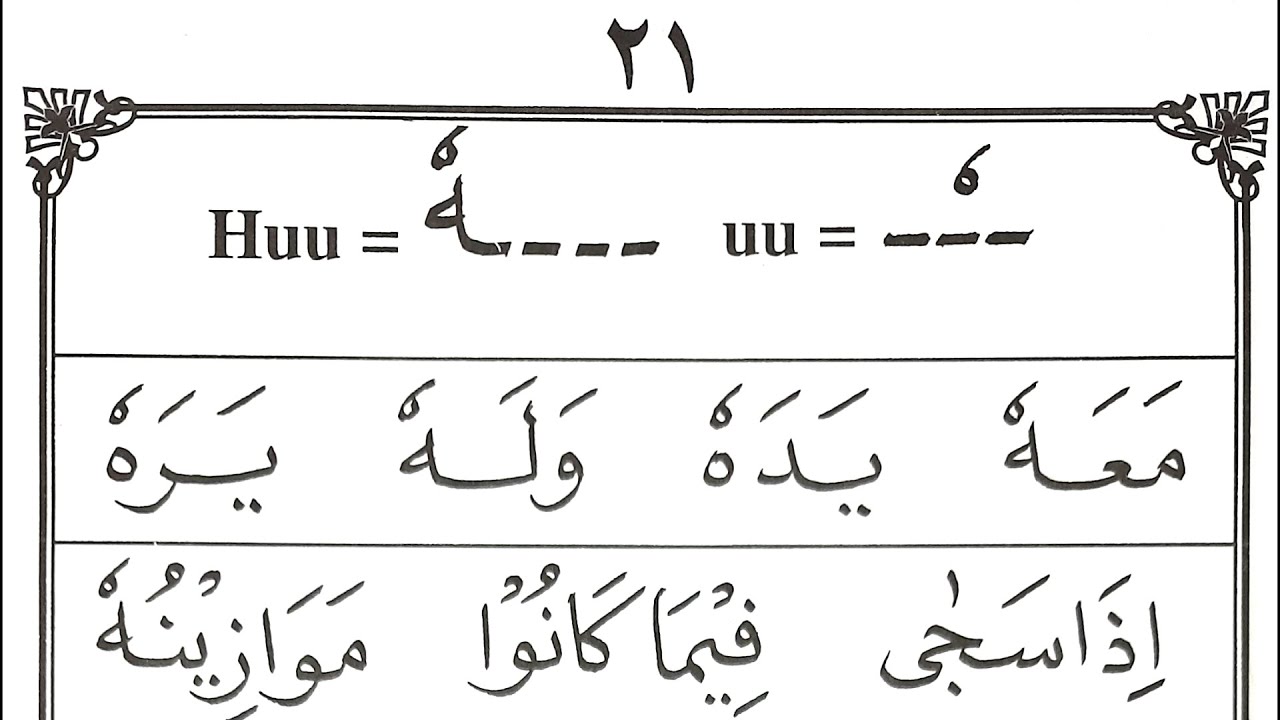 ٢١
Huu = ـهٗ uu = ــٗـ
مَعَهٗ يَدَهٗ وَلَهٗ يَرَهٗ
اِذَا سَجٰى فِيْمَا كَانُوْا مَوَازِيْنُهٗ